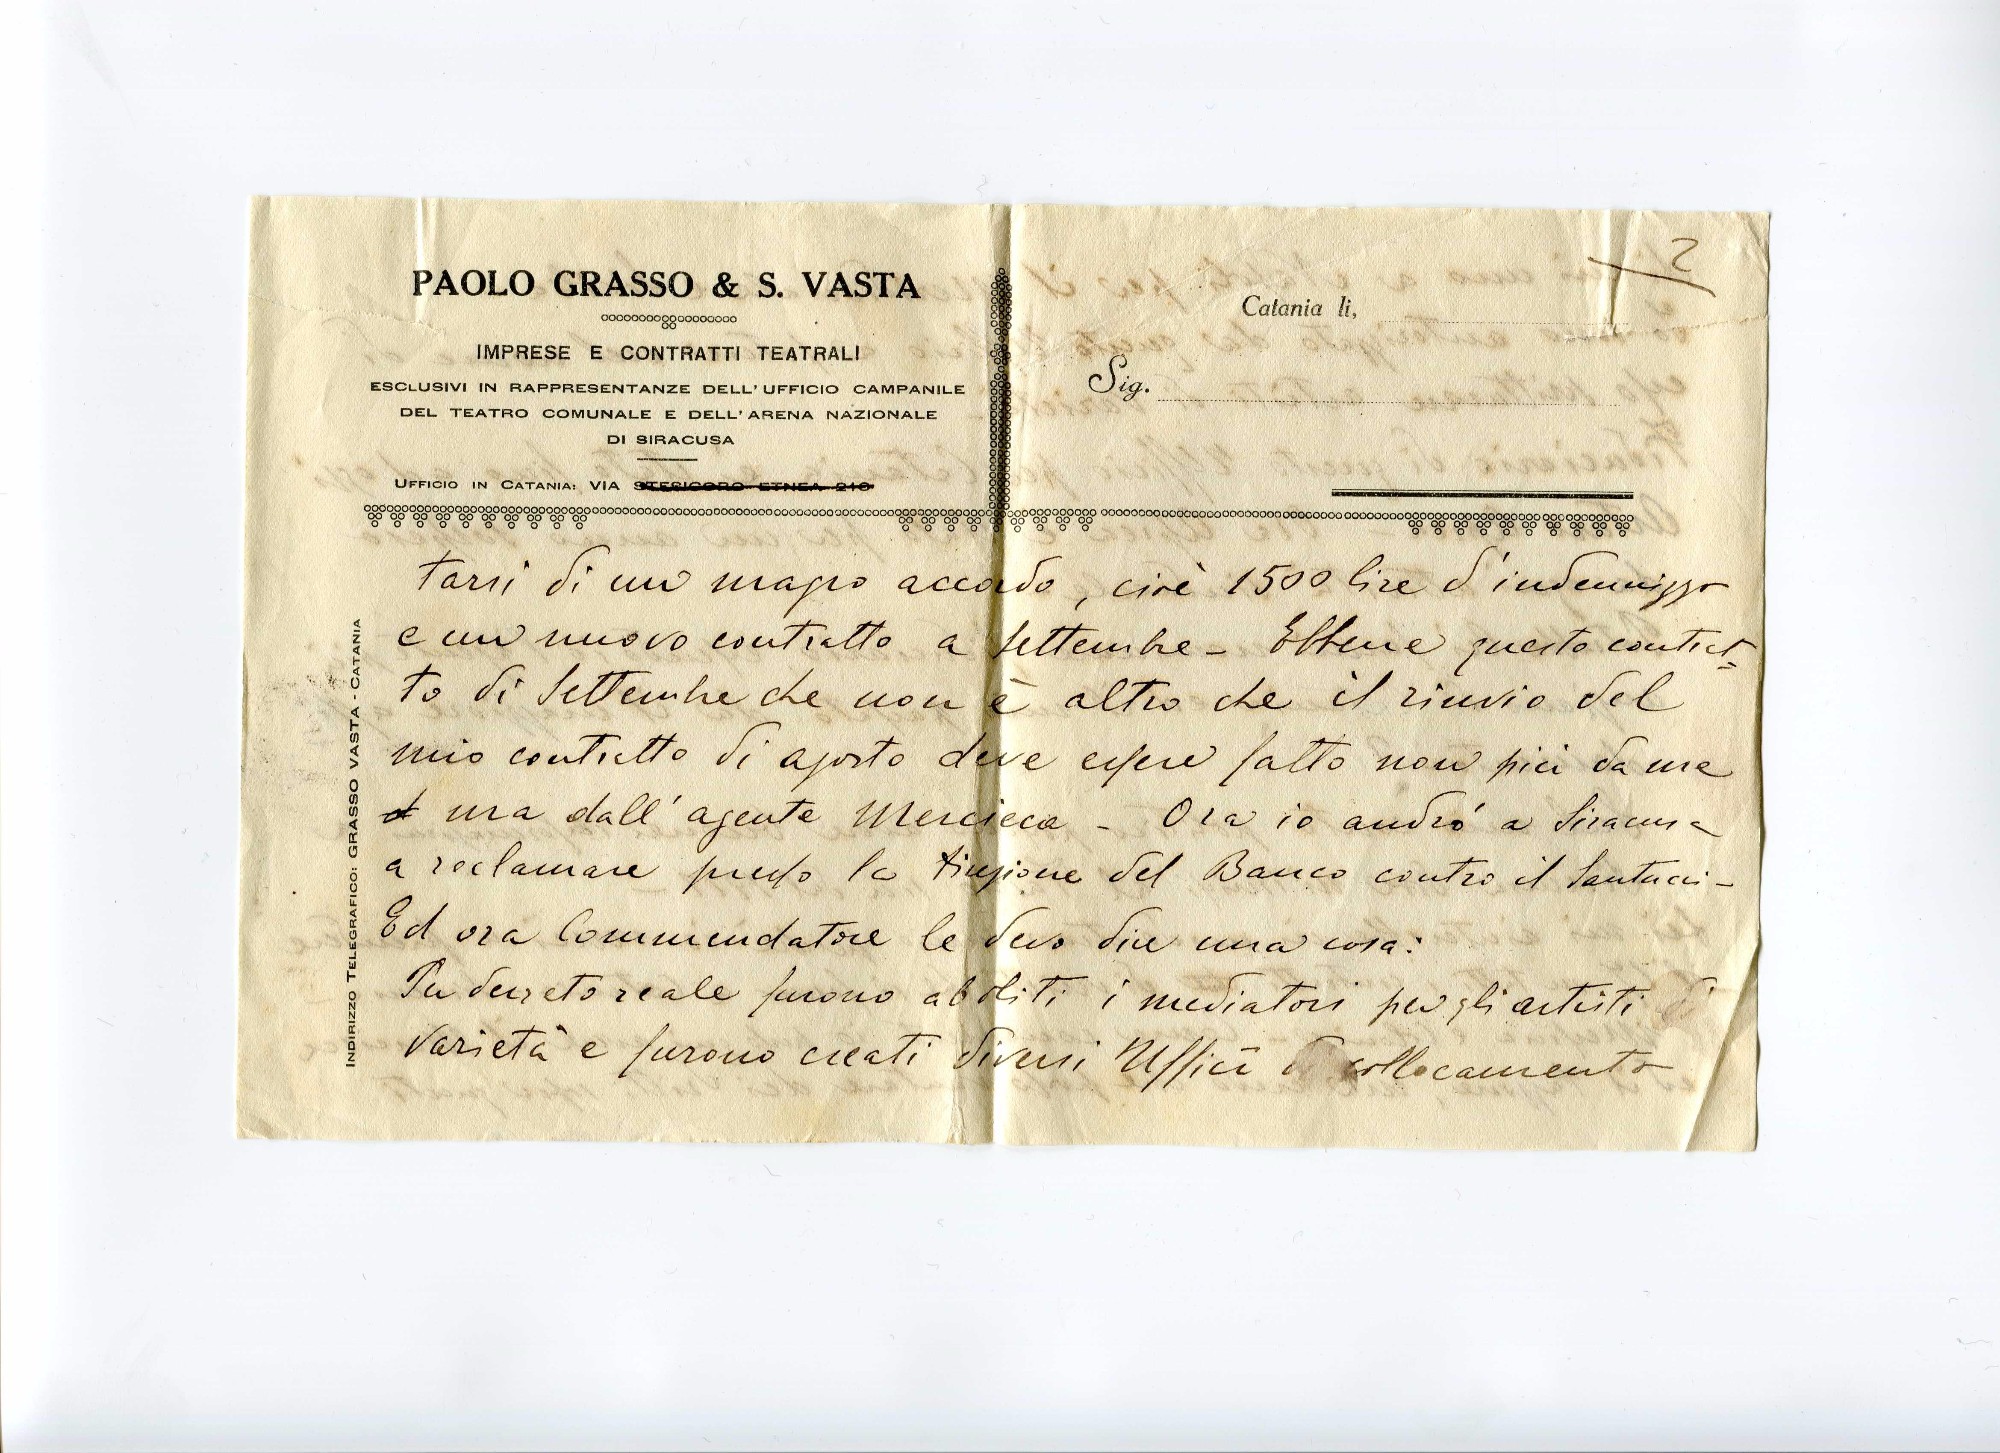 2
PAOLO GRASSO & S. VASTA
IMPRESE E CONTRATTI TEATRALI
ESCLUSIVI IN RAPPRESENTANZE DELL'UFFICIO CAMPANILE
DEL TEATRO COMUNALE E DELL'ARENA NAZIONALE
DI SIRACUSA
UFFICIO IN CATANIA: VIA STESICORO ETNEA 210
Catania lì,
Sig.
INDIRIZZO TELEGRAFICO: GRASSO VASTA - CATANIA
tarsi di un magro accordo, cioè 1500 lire d'indennizzo
e un nuovo contratto a Settembre - Ebbene questo contrat=
to di Settembre che non è altro che il rinvio del
mio contratto di agosto deve essere fatto non più da me
ma dall'agente Mercieca - Ora io andrò a Siracusa
a reclamare presso la del Banco contro il Santucci -
Ed ora Commendatore le devo dire una cosa:
Per decreto reale furono aboliti i mediatori per gli artisti di
varietà e furono creati diversi Uffici di collocamento